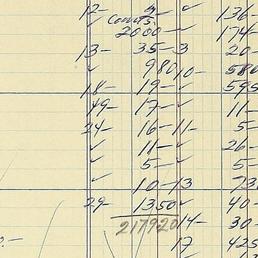 12- 3 ✓ 136-
✓ County. 2000- 174-
13- 35- 3 20-
✓ 980 10- 580
18- 19- ✓ 595
49- 17- ✓ 11-
24- 16- 11- 5-
✓ 11- ✓ 26-
✓ 5- ✓ 5-
✓ 10- 13 73
29- 13.50 ✓ 40-
217920 14- 30-
17 425